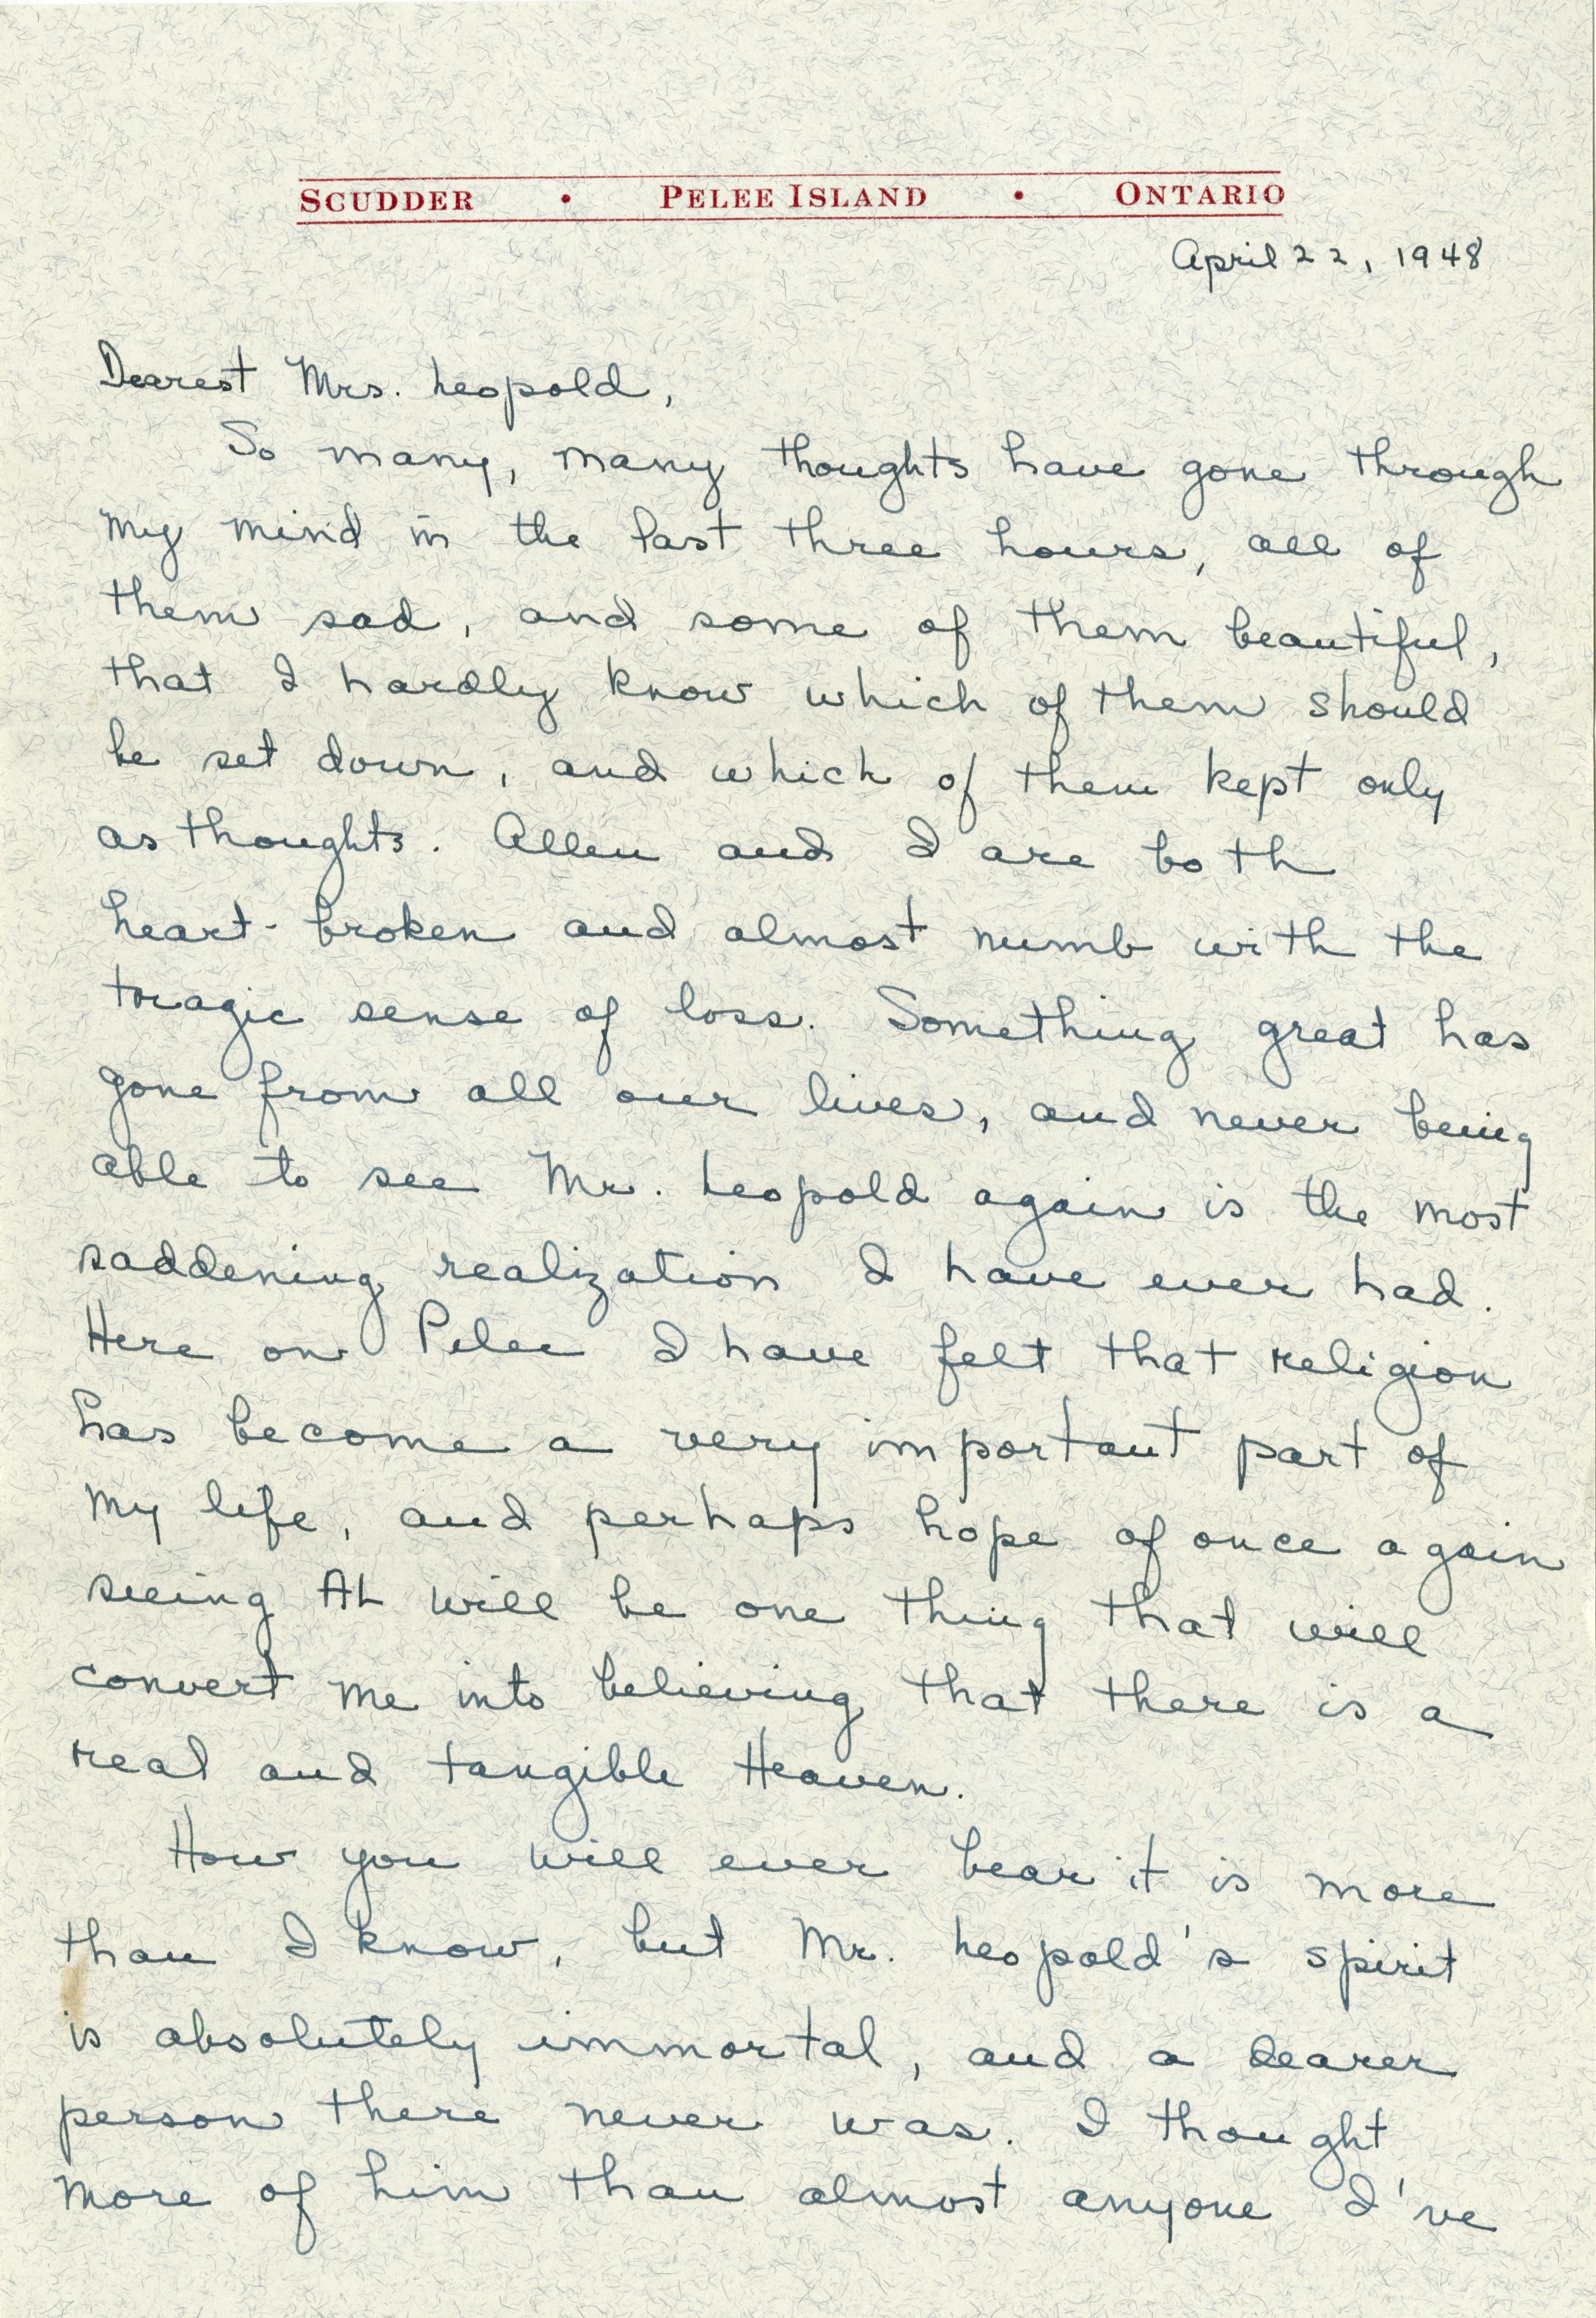 SCUDDER • PELEE ISLAND • ONTARIO
April 22, 1948
Dearest Mrs. Leopold,
So many, many thoughts have gone through
my mind in the last three hours, all of
them sad, and some of them beautiful,
that I hardly know which of them should
be set down, and which of them kept only
as thoughts. Allen and I are both
heart-broken and almost numb with the
tragic sense of loss. Something great has
gone from all our lives, and never being
able to see Mr. Leopold again is the most
saddening realization I have ever had.
Here on Pelee I have felt that religion
has become a very important part of
my life, and perhaps hope of once again
seeing AL will be one thing that will
convert me into believing that there is a
real and tangible Heaven.
How you will ever bear it is more
than I know, but Mr. Leopold's spirit
is absolutely immortal, and a dearer
person there never was. I thought
more of him than almost anyone I've